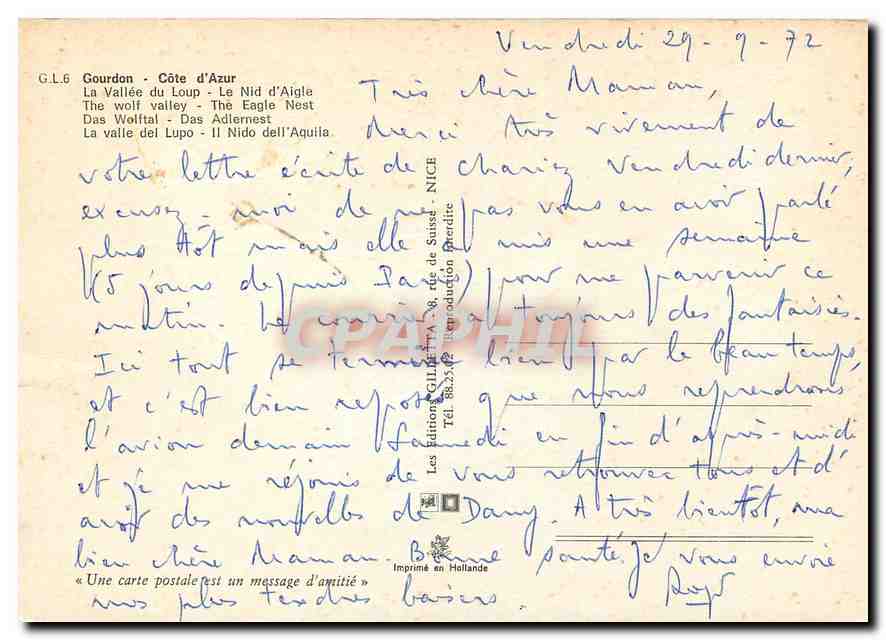 Vendredi 29-9-72
G.L.6 Gourdon - Côte d'Azur
La Vallée du Loup - Le Nid d'Aigle
The wolf valley - The Eagle Nest
Das Wolftal - Das Adlernest
La valle del Lupo - Il Nido dell'Aquila
Très chère Maman,
Merci très vivement de
votre lettre écrite de vendredi dernier,
excusez-moi de ne pas vous en avoir parlé
plus tôt mais elle a mis une semaine
(5 jours depuis Paris) pour me parvenir ce
matin. Le courrier a toujours des fantaisies.
Ici tout se termine bien par le beau temps,
et c'est bien reposés que nous reprendrons
l'avion demain Samedi en fin d'après-midi
et je me réjouis de vous retrouver tous et d'
avoir des nouvelles de Dany. A très bientôt, ma
bien chère Maman. Bonne santé. Je vous envoie
mes plus tendres baisers.
Les Editions GILLETTA - 8, rue de Suisse - NICE
Tél. 88.25.02 Reproduction interdite
CPAPHIL
Imprimé en Hollande
« Une carte postale est un message d'amitié »